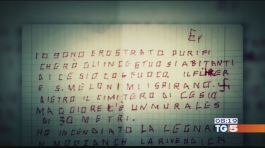 IO SONO EROSTRATO PURIFI
CHERÒ QUINCESTUOSI ABITANTI
DI CESIO COL FUOCO. IL
E S. MELONI MI ISPIRANO.
DIETRO IL CIMITERO DI CESIO
MAGGIORE C'È UN MURALES
DI 30 METRI.
HO INCENDIATO LA LEGNA
LA RIVENDICA
08:19
TG5